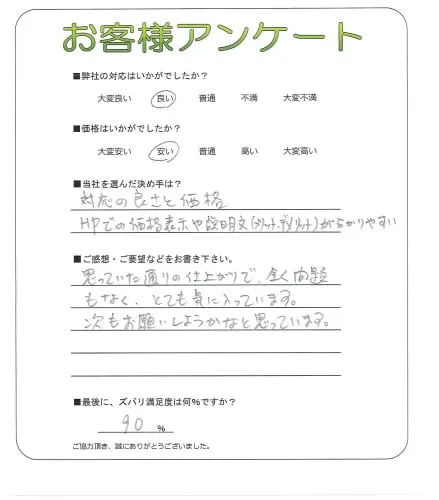 お客様アンケート
■弊社の対応はいかがでしたか？
大変良い 良い 普通 不満 大変不満
■価格はいかがでしたか？
大変安い 安い 普通 高い 大変高い
■当社を選んだ決め手は？
対応の良さと価格
HPでの価格表示や説明文(メリット、デメリット)が分かりやすい
■ご感想・ご要望などをお書き下さい。
思っていた通りの仕上がりで、全く問題
もなく、とても気に入っています。
次もお願いしようかなと思っています。
■最後に、ズバリ満足度は何%ですか？
90 %
ご協力頂き、誠にありがとうございました。